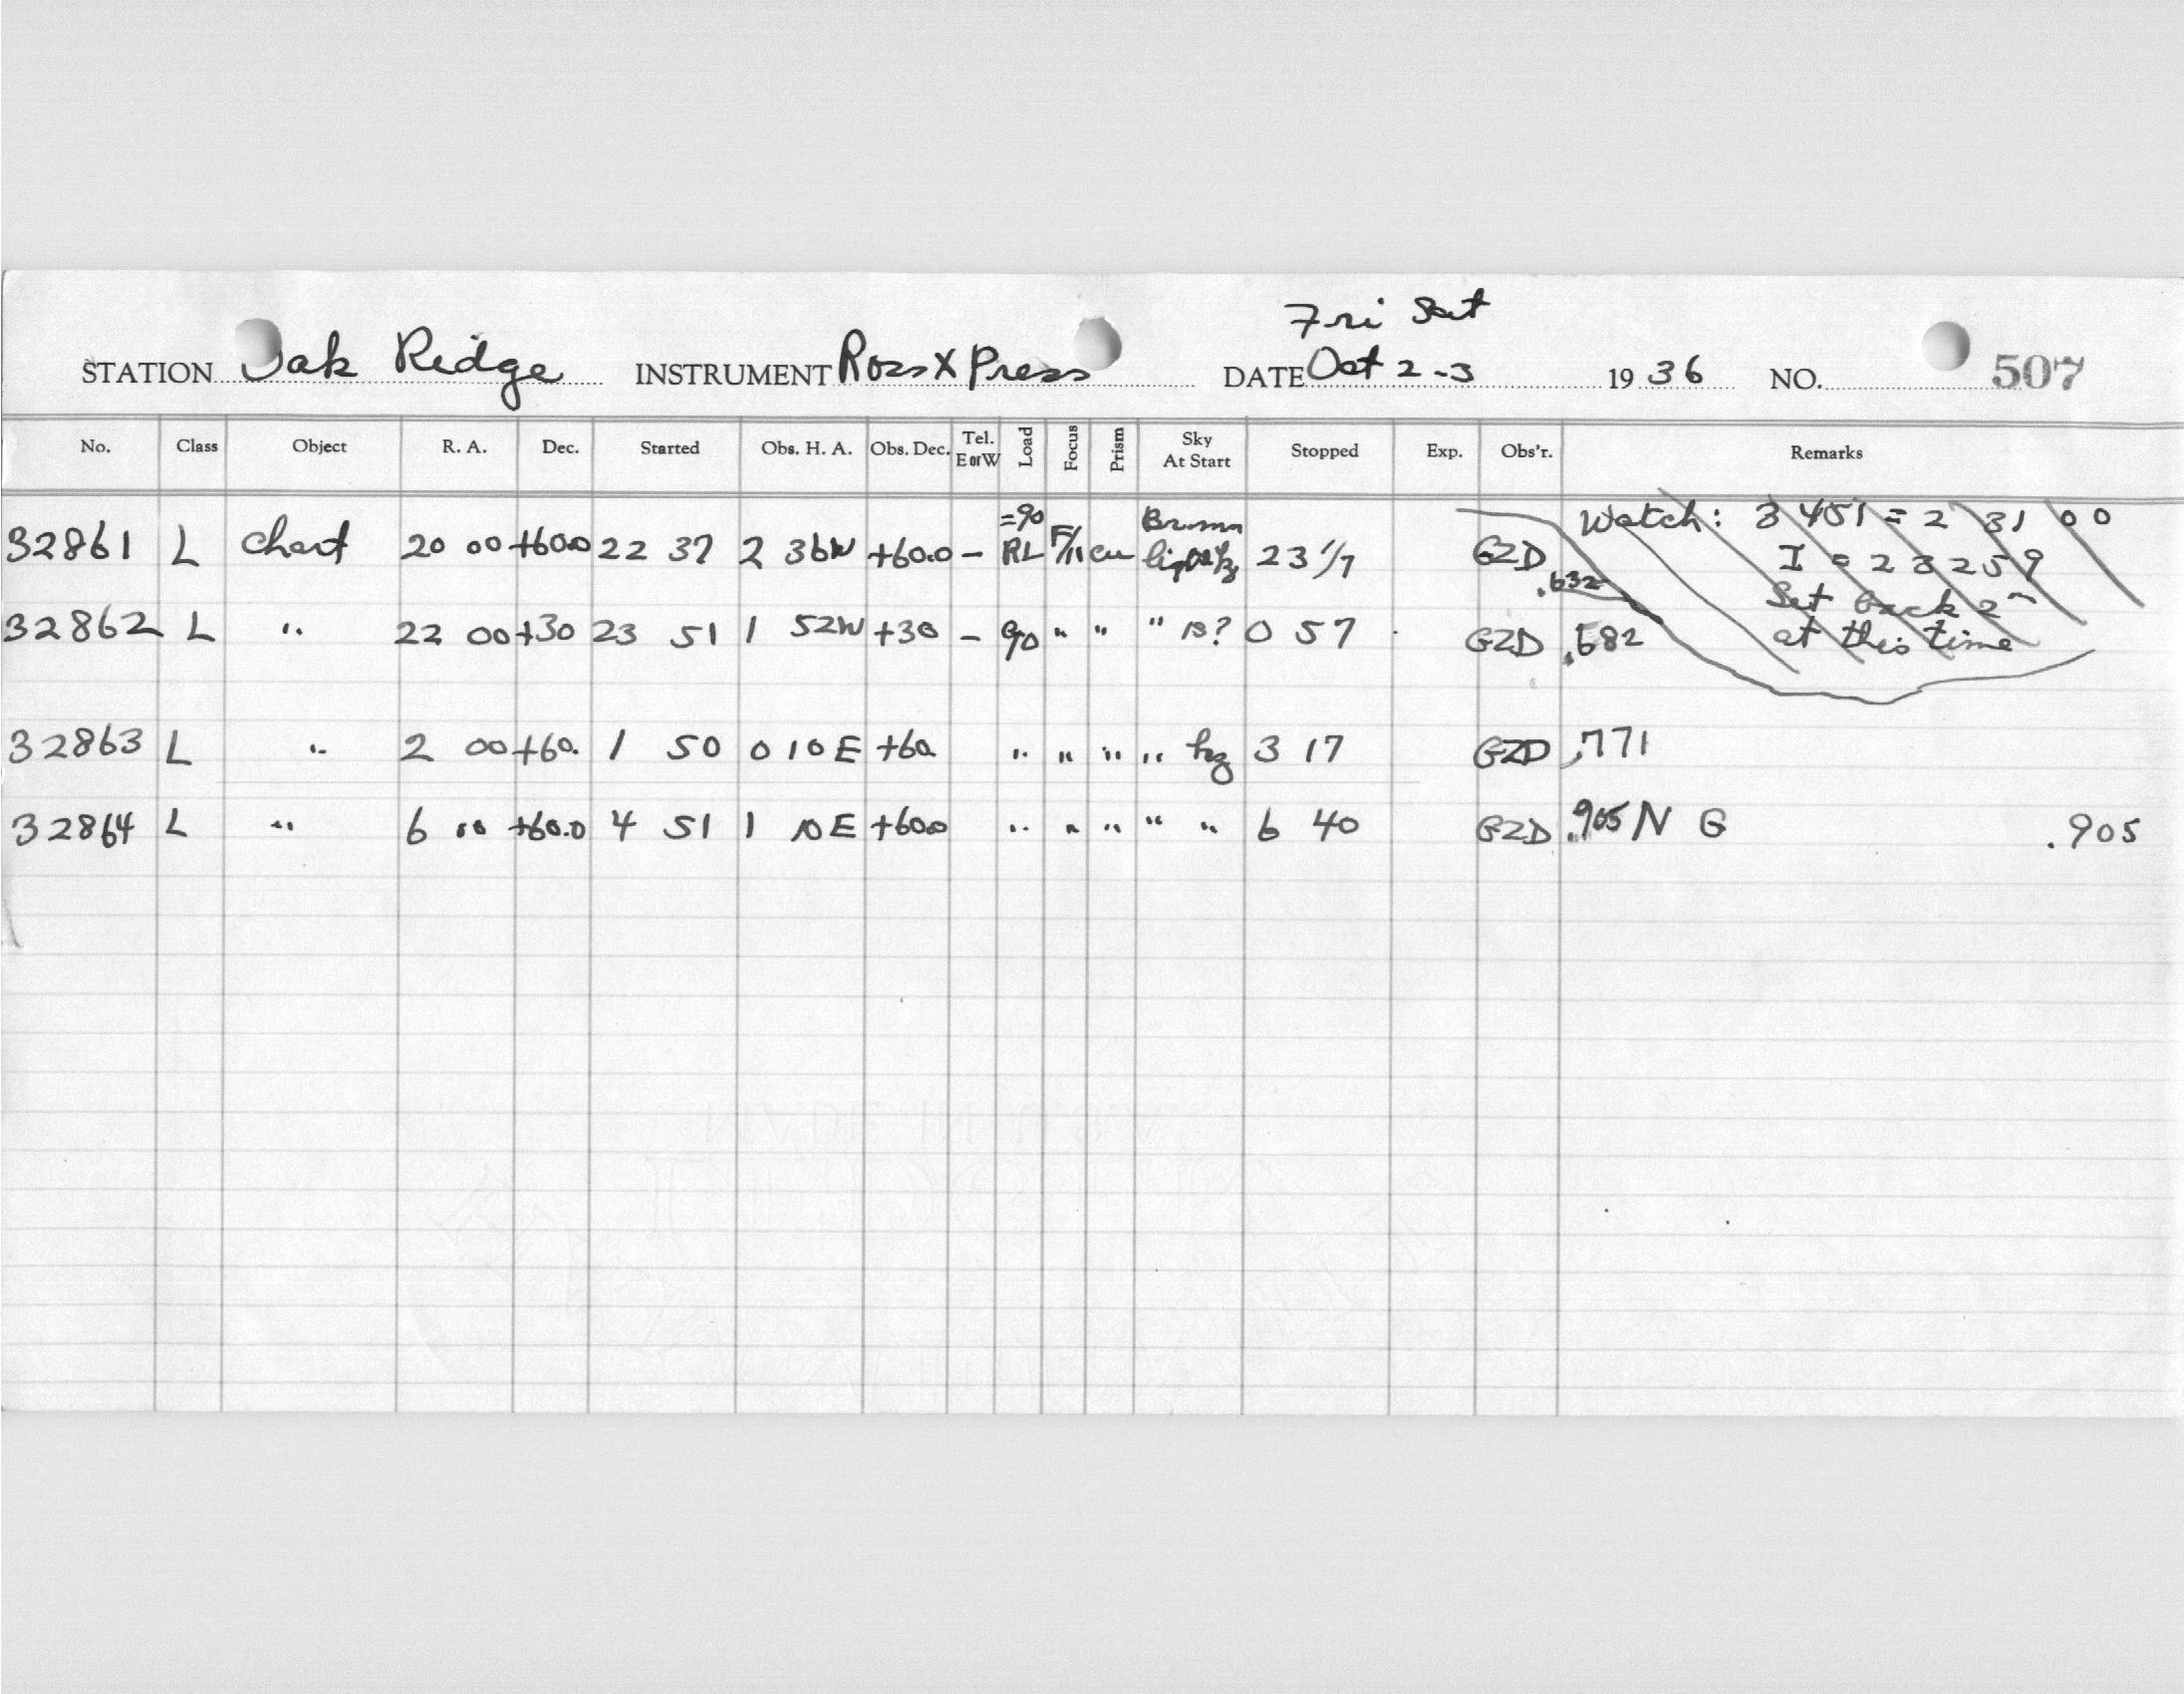 Fri Sat
STATION Oak Ridge INSTRUMENT Ross X Press DATE Oct 2-3 1936 NO. 507
No. Class Object R. A. Dec. Started Obs. H. A. Obs. Dec. Tel. E or W Load Focus Prism Sky At Start Stopped Exp. Obs'r. Remarks
=90 Watch: 3 451 = 2 31 00
32861 L Chart 20 00 +60.0 22 37 2 36W +60.0 - RL F/11 23 GZD I = 23 25 9
.632 Set back 2m
32862 L " 22 00 +30 23 51 1 52W +30 - 90 " " " 0 57 GZD .682 at this time
32863 L " 2 00 +60. 1 50 0 10 E +60. " " " " hz 3 17 GZD .771
32864 L " 6 00 +60.0 4 51 1 10 E +60.0 " " " " " 6 40 GZD .905 N G .905